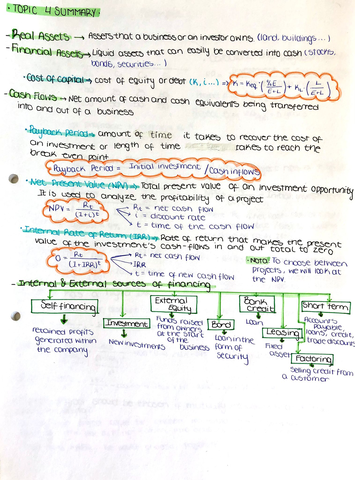 · TOPIC 4 SUMMARY
- Real Assets → Assets that a business or an investor owns (land, buildings...)
- Financial Assets → Liquid assets that can easily be converted into cash (stocks,
bonds, securities...)
· Cost of capital → cost of equity or debt (K, i...) ⇒ K = Keq · (E / E+L) + KL · (L / E+L)
- Cash Flows → Net amount of cash and cash equivalents being transferred
into and out of a business
· Payback Period → amount of time it takes to recover the cost of
an investment or length of time takes to reach the
break even point
Payback Period = Initial investment / Cash inflows
· Net Present Value (NPV) → Total present value of an investment opportunity
It is used to analyze the profitability of a project
NPV = Rt / (1+i)^t
Rt = net cash flow
i = discount rate
t = time of the cash flow
· Internal Rate of Return (IRR) → Rate of return that makes the present
value of the investment's cash-flows in and out total to zero
0 = Rt / (1+IRR)^t
Rt = net cash flow
IRR
t = time of new cash flow
· Nota: To choose between
projects, we will look at
the NPV.
- Internal & External sources of financing
Self financing
retained profits
generated within
the company
Investment
New investments
External
Equity
Funds raised
from owners
at the start
of the
business
Bond
Loan in the
form of
security
Bank
credit
Loan
Leasing
Fixed
asset
Short term
Accounts
payable,
loans, credit,
trade discounts
Factoring
Selling credit from
a customer